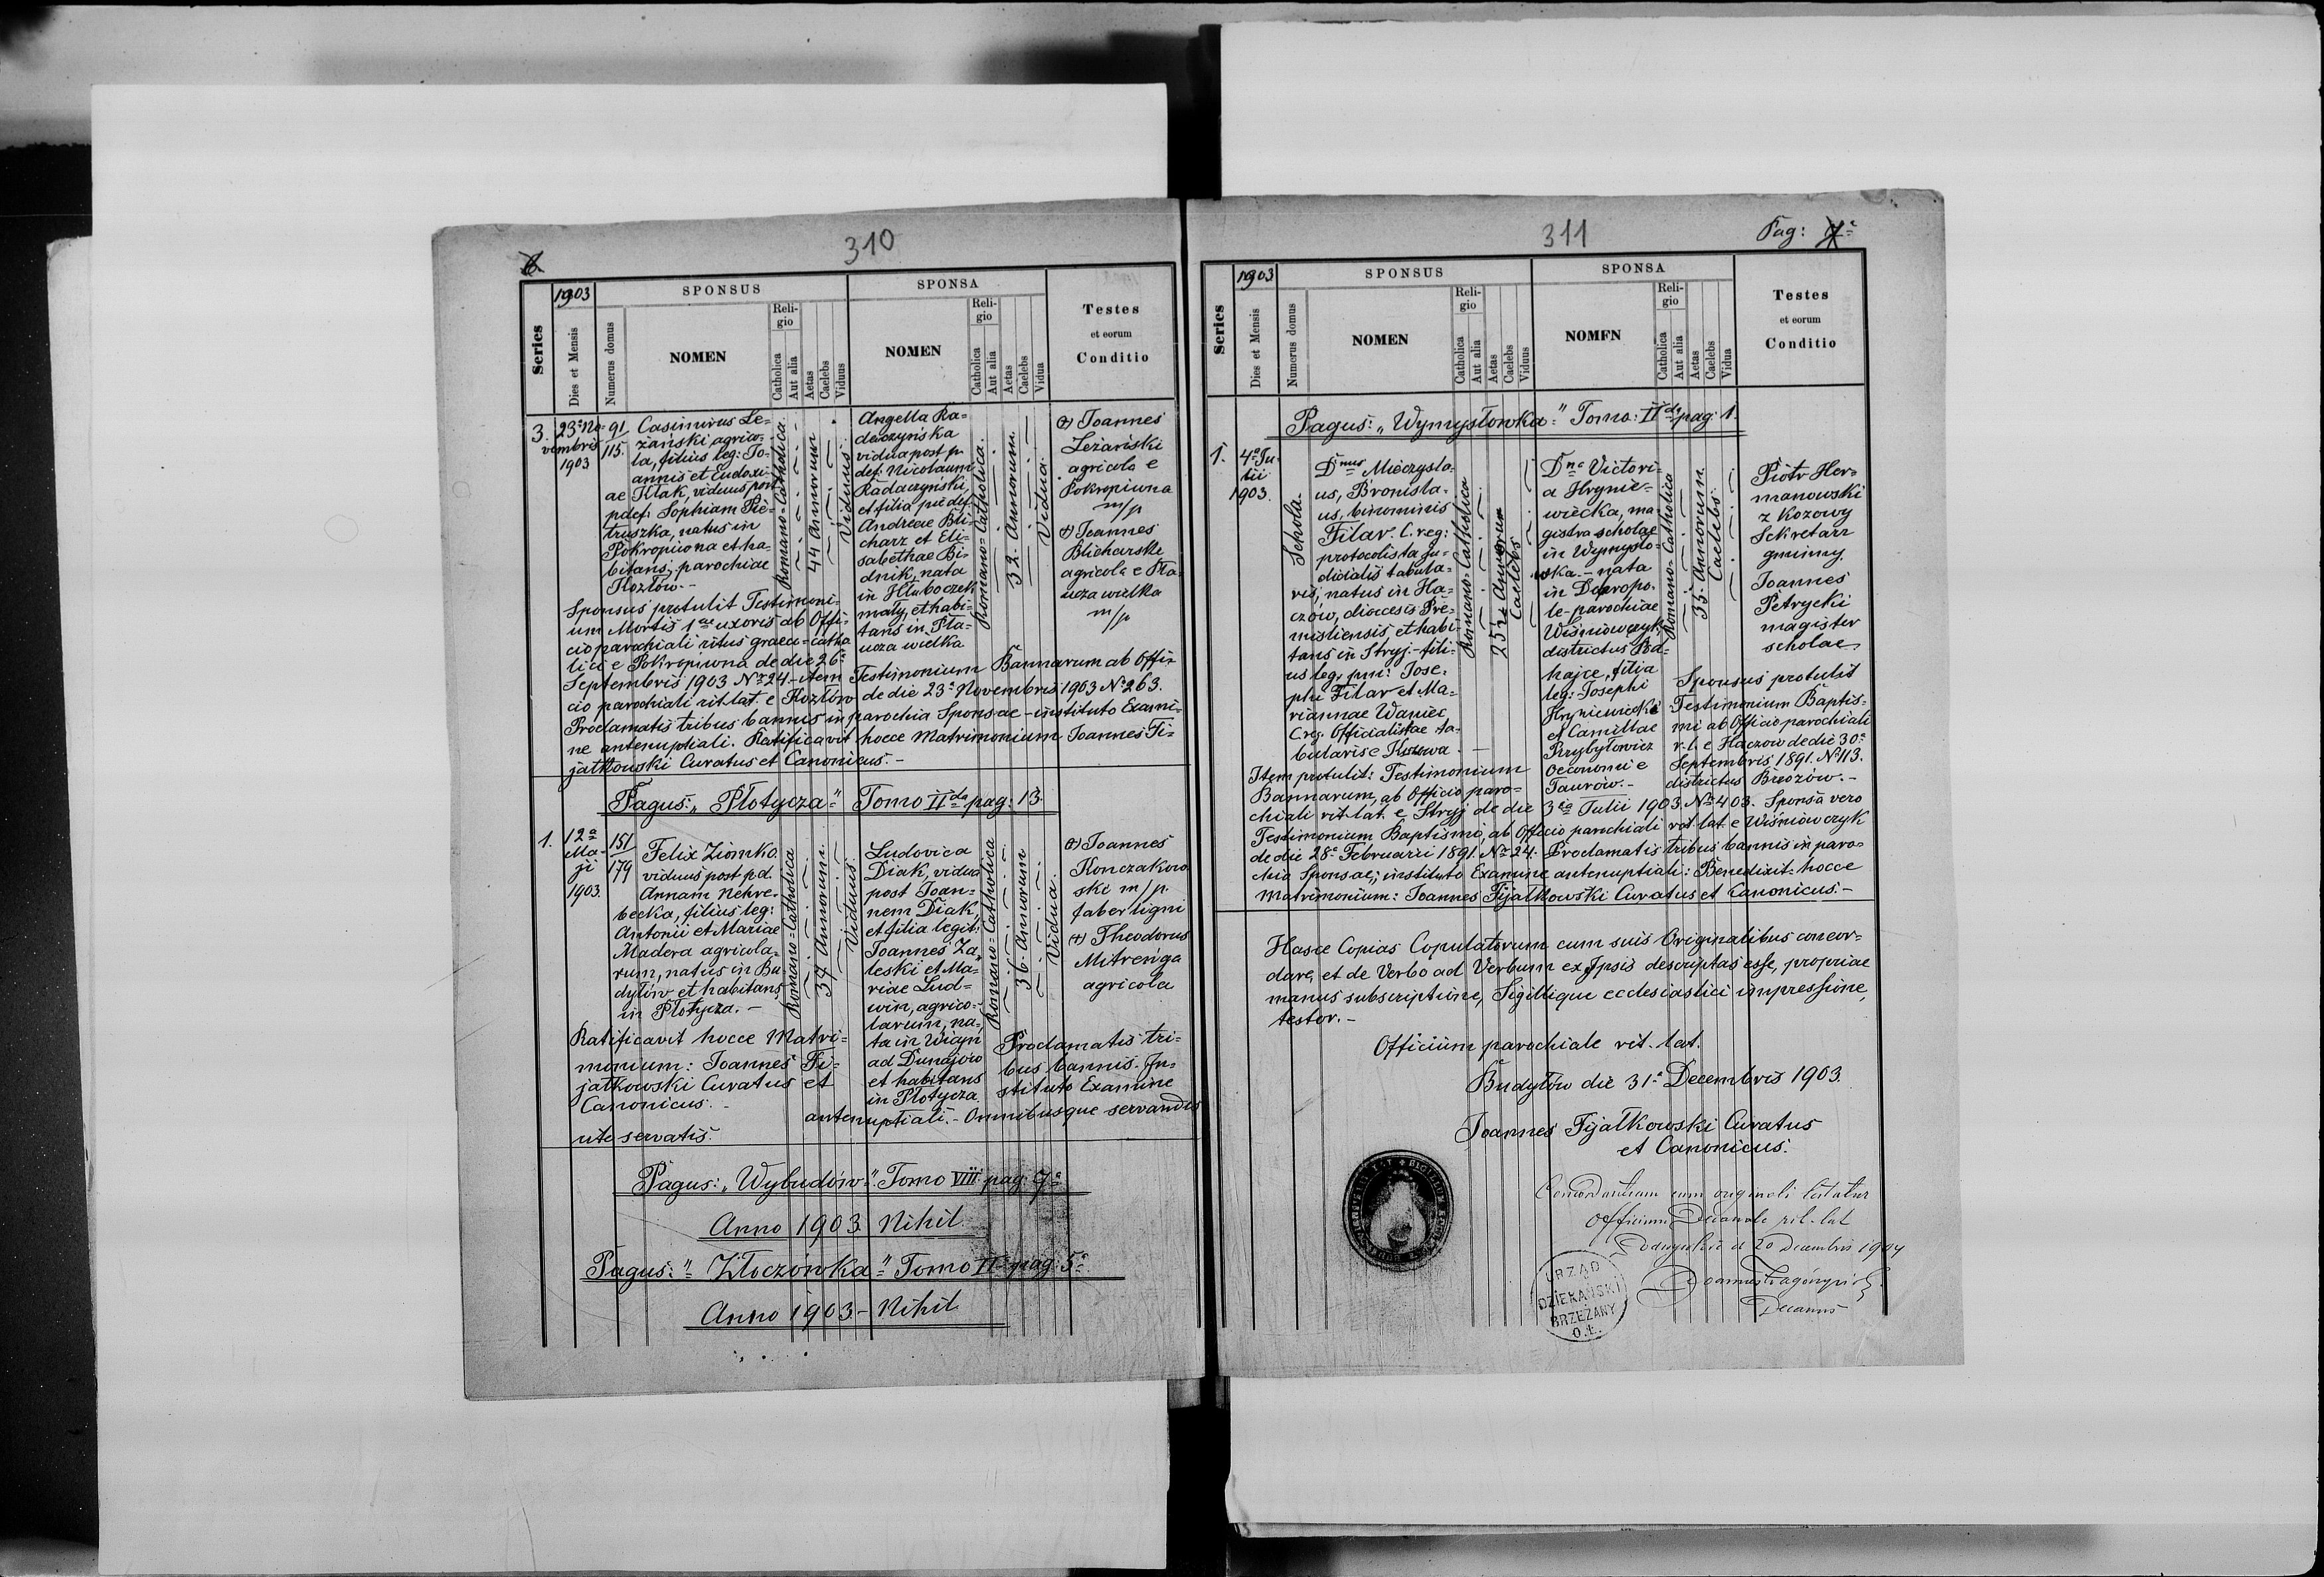 310
6.
1903
SPONSUS
SPONSA
Series
Dies et Mensis
Numerus domus
NOMEN
Reli-
gio
Catholica
Aut alia
Aetas
Caelebs
Viduus
NOMEN
Reli-
gio
Catholica
Aut alia
Aetas
Caelebs
Vidua
Testes
et eorum
Conditio
3.
23a No-
vembris
1903
91
115.
Casimirus Le-
żański agrico-
la, filius leg: Jo-
annis et Eudoxi-
ae Ktak, viduus post
pdef: Sophiam Pie-
truszka, natus in
Pokropiwna et ha-
bitans, parochiae
Kozłów.-
Romano-Catholica.
44 Annorum
Viduus.
Angella Ra-
daczyńska
vidua post p.
def: Nicolaum
Radaczyński,
et filia præ def.
Andreae Bli-
charz et Eli-
sabethae Bi-
dnik, nata
in Hłuboczek
mały, et habi-
tans in Pła-
ucza wielka
Romano-Catholica.
32. Annorum.
Vidua.
(+) Joannes
Leżański
agricola e
Pokropiwna
m/p
+) Joannes
Blicharski
agricola e Pła-
ucza wielka
m/p
Sponsus protulit Testimoni-
um Mortis 1ae uxoris ab Offi-
cio parochiali ritus graeco-catho
lici e Pokropiwna de die 26a
Septembris 1903 Nr 24.- Item Testimonium Bannorum ab Offi-
cio parochiali rit. lat. e Kozłów de die 23a Novembris 1903 No 263.
Proclamatis tribus bannis in parochia Sponsae - instituto Exami-
ne antenuptiali. Ratificavit hocce Matrimonium Joannes Fi-
jałkowski Curatus et Canonicus.-
Pagus: „Płotycza" Tomo IIdo pag: 13.
1.
12a
Ma-
ji
1903.
151
179
Felix Ziomko.
viduus post p.d.
Annam Nehre-
becka, filius leg:
Antonii et Mariae
Madera agricola-
rum, natus in Bu-
dyłów et habitans
in Płotycza.-
Romano-Catholica
37 Annorum.
Viduus.
Ludovica
Diak, vidua
post Joan-
nem Diak,
et filia legit:
Joannes Za-
leski et Ma-
riae Lud-
win, agrico-
larum, na-
ta in Wicyń
ad Dunajów
et habitans
in Płotycza.
Romano-Catholica
36. Annorum
Vidua.
(+) Joannes
Konczakow-
ski m/p.
faber ligni
(+) Theodorus
Mitrenga
agricola
Ratificavit hocce Matri-
monium: Joannes Fi-
jałkowski Curatus et
Canonicus.-
Proclamatis tri-
bus bannis. In-
stituto Examine
antenuptiali.- Omnibusque servandis
rite servatis.
Pagus: „Wybudów". Tomo VIII. pag: 7a
Anno 1903 Nihil
Pagus: „Złoczówka" Tomo II pag: 5a
Anno 1903.- Nihil
311
Pag: 7a
1903
SPONSUS
SPONSA
Series
Dies et Mensis
Numerus domus
NOMEN
Reli-
gio
Catholica
Aut alia
Aetas
Caelebs
Viduus
NOMEN
Reli-
gio
Catholica
Aut alia
Aetas
Caelebs
Vidua
Testes
et eorum
Conditio
Pagus: „Wymysłowka" Tomo: IIdo pag: 1.
1.
4a Ju-
lii
1903.
Schola.
Dnus Mieczysla-
us, Bronisla-
us, binominis
Filar. C. reg:
protocolista ju-
dicialis tabula-
ris, natus in Ha-
czów, diocesis Pre-
misliensis, et habi-
tans in Stryj.- fili-
us leg. Jose-
phi Filar et Ma-
riannae Waniec
C. reg. Officialistae ta-
bularis e
Romano-Catholica
25 Annorum
Caelebs
Dna Victori-
a Hrynie-
wiecka, ma
gistra scholae
in Wymysło-
wka.- nata
in Dobropo-
le- parochiae
Wiśniowczyk,
districtus Pod-
hajce, filia
leg: Josephi
Hryniewiecki
et Camillae
Przybyłowicz
oeconomi e
Taurów.-
Romano-Catholica
33. Annorum.
Caelebs.
Piotr Her-
manowski
z Kozowy
Sekretarz
gminny.
Joannes
Petrycki
magister
scholae
Sponsus protulit
Testimonium Baptis-
mi ab Officio parochiali
r. l. e Haczów de die 30a
Septembris 1891. No 113.
districtus Brzozów.-
Item protulit: Testimonium
Bannorum, ab Officio paro-
chiali rit. lat. e Stryj de die 3ia Julii 1903 Nr 403. Sponsa vero
Testimonium Baptismi, ab Officio parochiali rit. lat. e Wiśniowczyk
de die 28a Februarii 1891. Nr 24. Proclamatis tribus bannis in paro-
chia Sponsae; instituto Examine antenuptiali: Benedixit hocce
Matrimonium: Joannes Fijałkowski Curatus et Canonicus.-
Hasce Copias Copulatorum cum suis Originalibus concor-
dare, et de Verbo ad Verbum ex Ipsis descriptas esse, propriae
manus subscriptione, Sigillique ecclesiastici impressione,
testor.-
Officium parochiale rit. lat.
Budyłów die 31a Decembris 1903.
Joannes Fijałkowski Curatus
et Canonicus.
Concordantiam cum originali testatur
Officium Decanale rit. lat
20 Decembris 1904
Joannes
Decanus
URZĄD
DZIEKAŃSKI
BRZEŻANY
O.Ł.